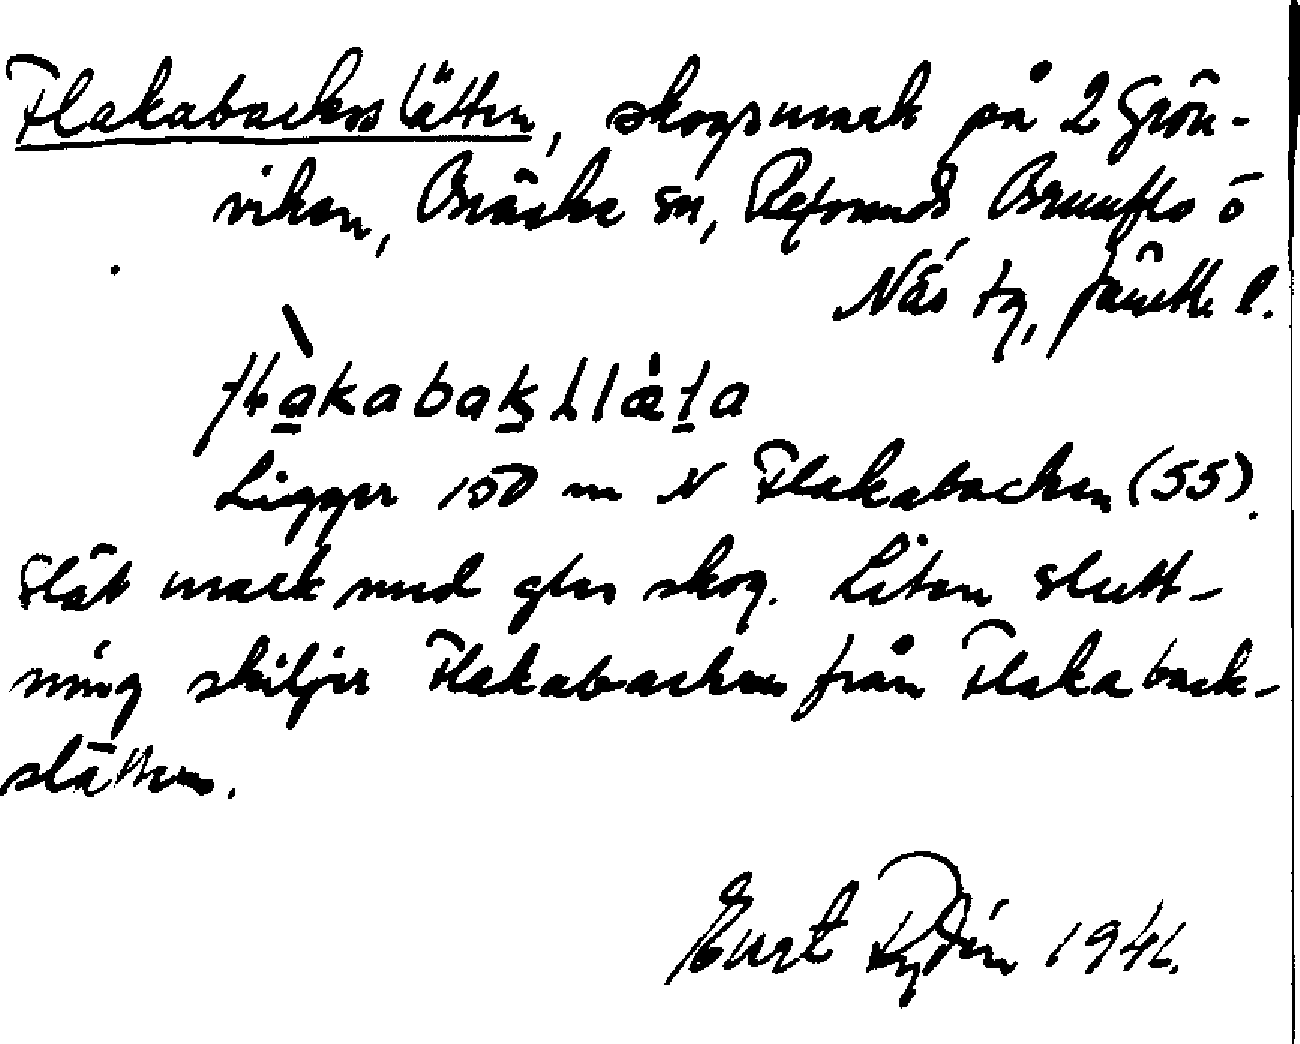 Flakabackslätten, skogsmark på 2 Grön-
viken, Bräcke sn, Refsunds Brunflo o
Näs tg, Jämtl. l.
Ligger 150 m N Flakabacken (55).
Slät mark med gles skog. Liten slutt-
ning skiljer Flakabacken från Flakaback-
slätten.
Kurt Rydén 1941.